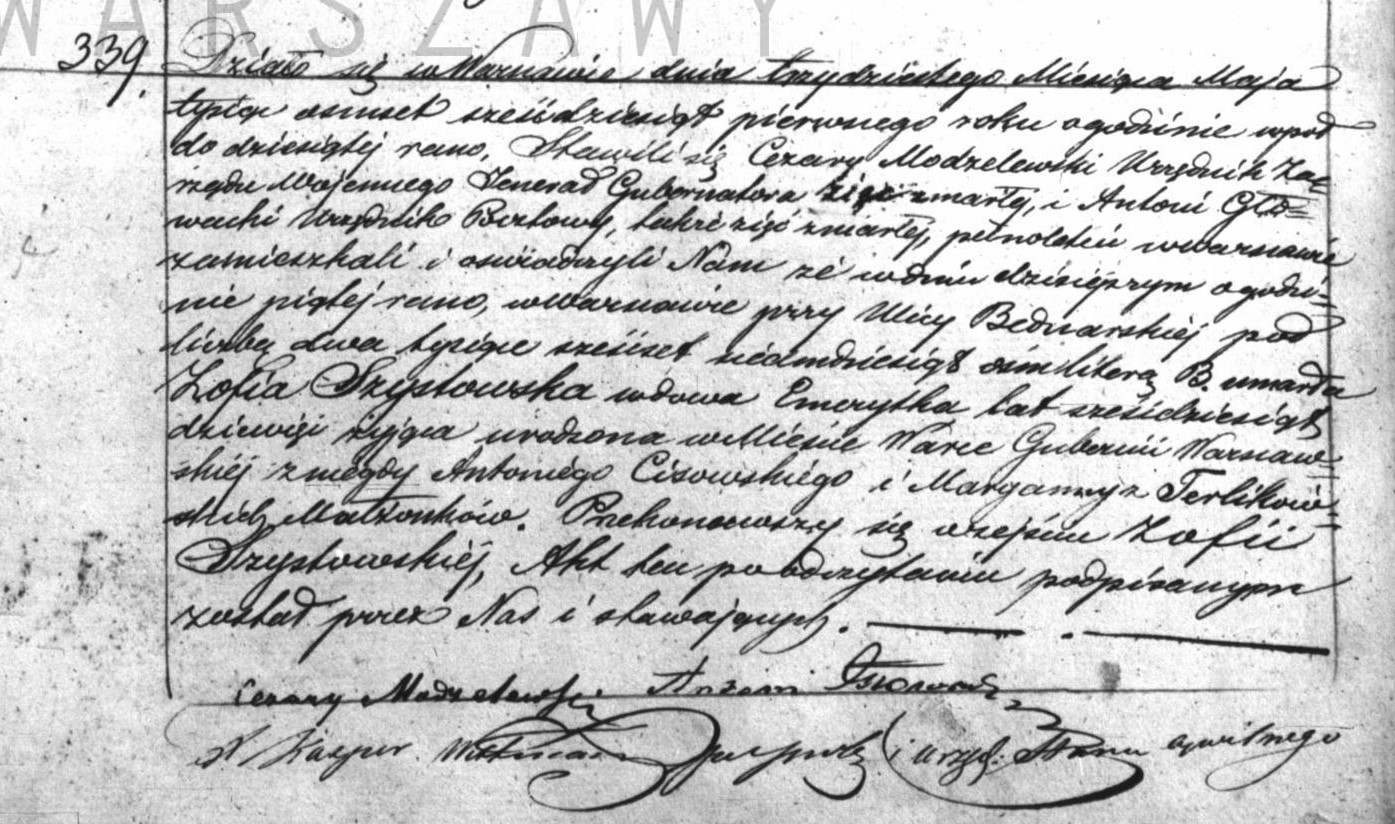 WARSZAWY
339. Działo się w Warszawie dnia trzydziestego Miesiąca Maja
tysiąc osmset sześćdziesiąt pierwszego roku o godzinie wpół
do dziesiątej rano. Stawili się Cezary Modzelewski Urzędnik Za=
rządu Wojennego Jenerał Gubernatora zięć zmarłej, i Antoni Gło=
wacki Urzędnik Pocztowy, także zięć zmarłej, pełnoletni w Warszawie
zamieszkali i oświadczyli Nam że w dniu dzisiejszym o godzi=
nie piątej rano, w Warszawie przy Ulicy Bednarskiej pod
liczbą dwa tysiące sześćset siedmdziesiąt ośm literą B. umarła
Zofia Szystowska wdowa Emerytka lat sześćdziesiąt
dziewięć żyjąca urodzona w Mieście Warce Gubernii Warszaw=
skiej z niegdy Antoniego Cisowskiego i Margarety z Terlikow=
skich Małżonków. Przekonawszy się o zejściu Zofii
Szystowskiej, Akt ten po odczytaniu podpisanym
został przez Nas i stawających.
Cezary Modzelewski Antoni
X Kasper i Urzęd. Stanu cywilnego